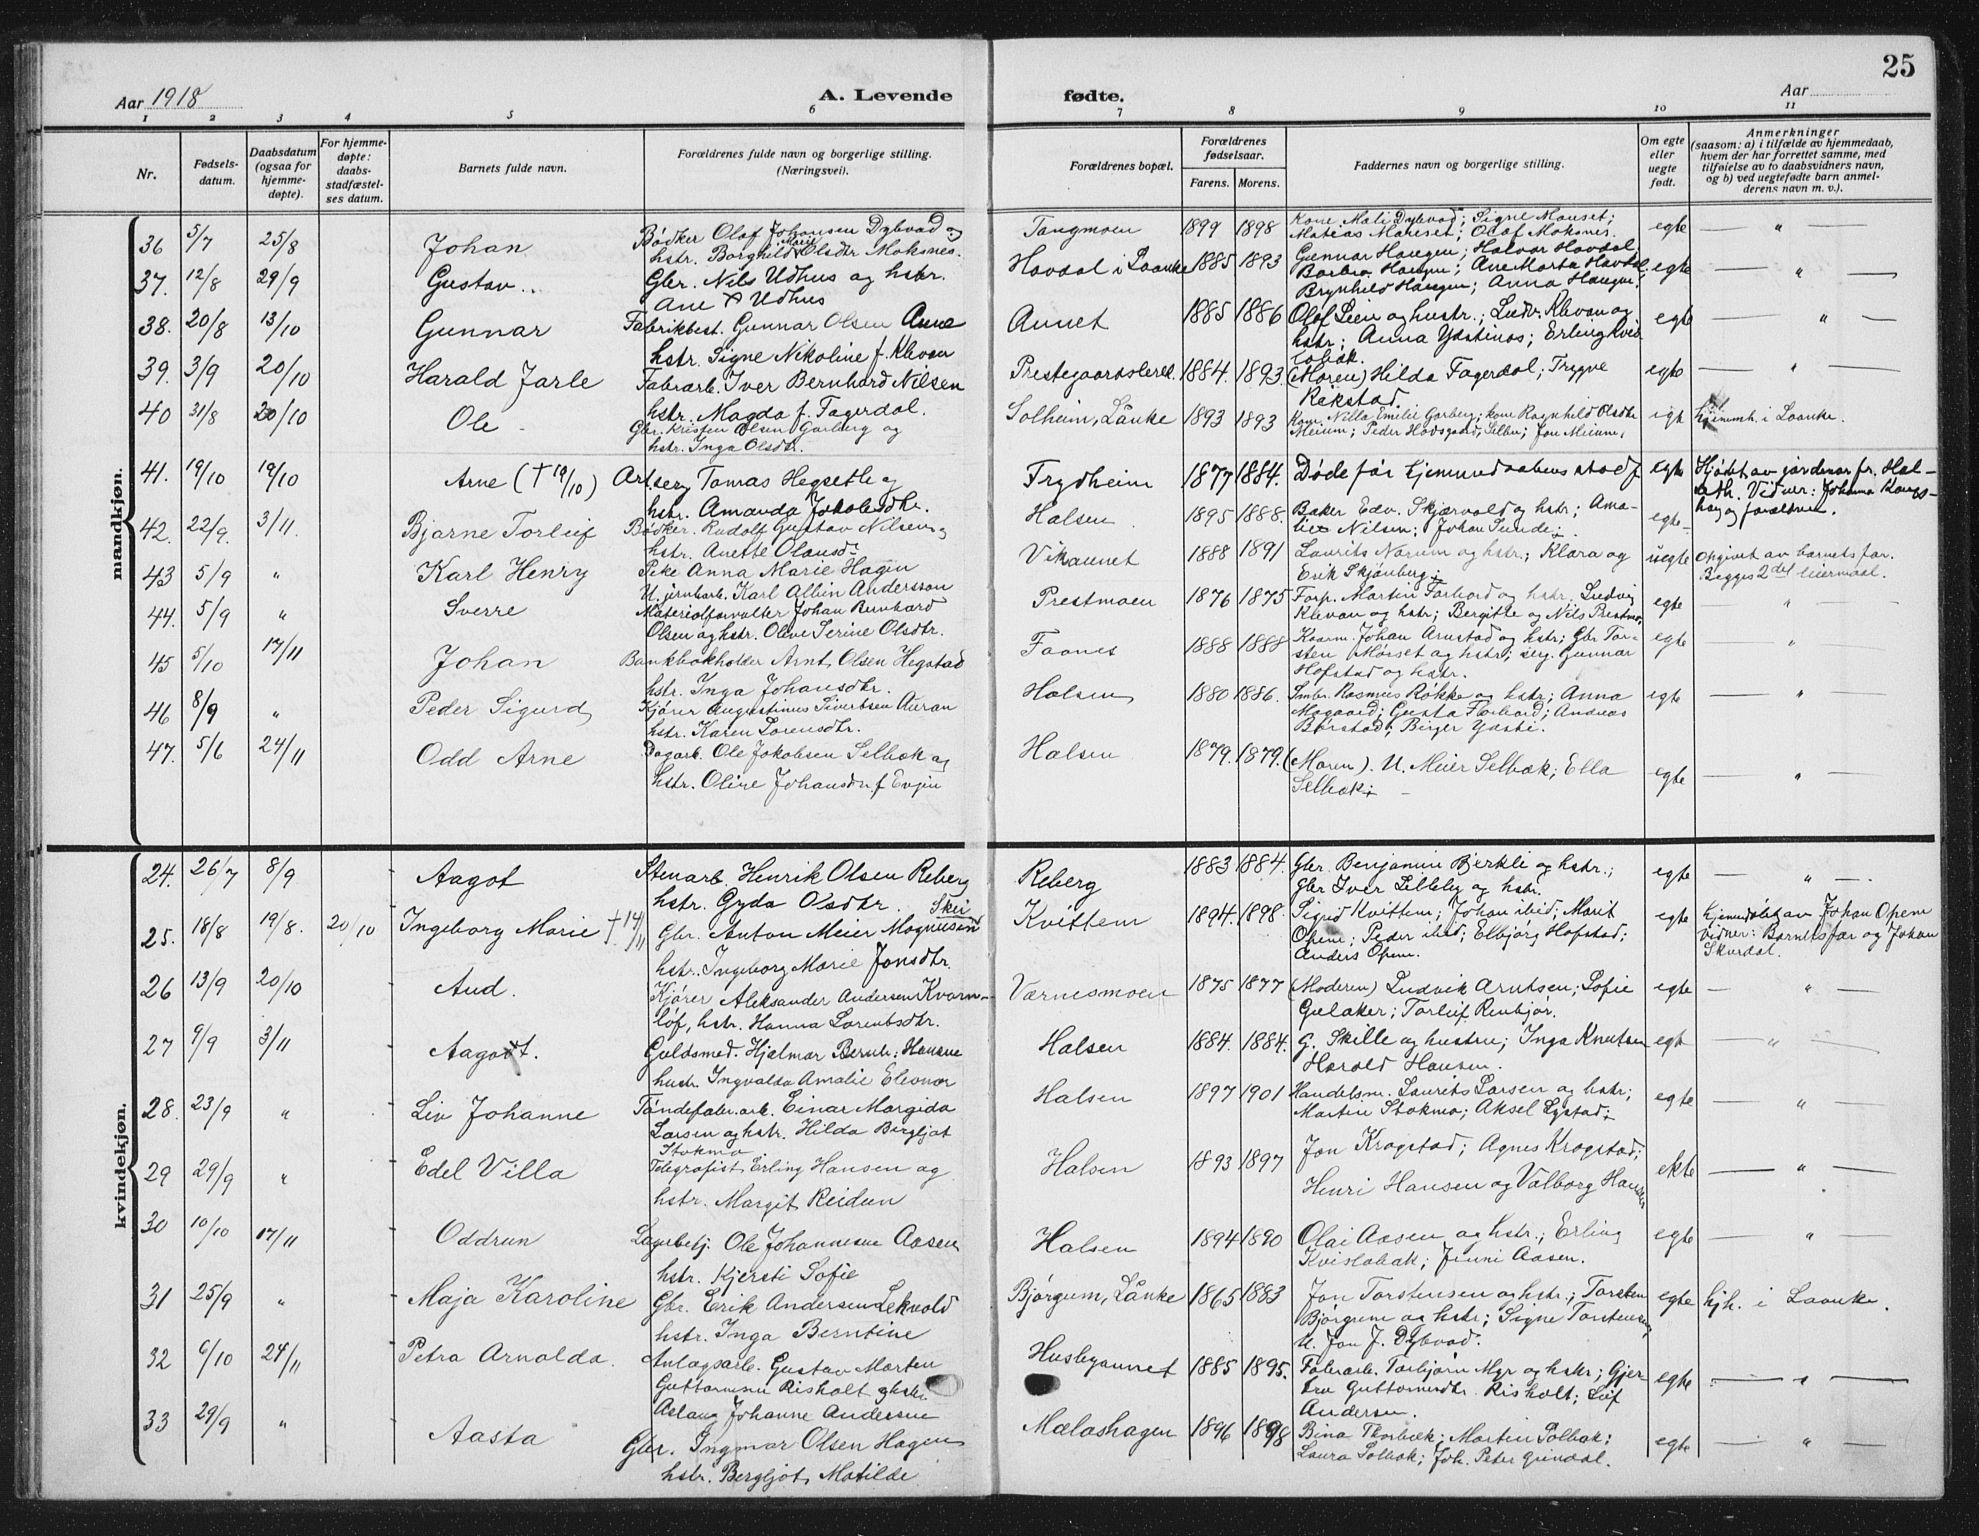 25
Aar 1918
A. Levende
fødte.
Aar
1 2 3 4 5 6 7 8 9 10 11
Nr.
Fødsels-
datum.
Daabsdatum
(ogsaa for
hjemme-
døpte).
For hjemme-
døpte:
daabs-
stadfæstel-
ses datum.
Barnets fulde navn.
Forældrenes fulde navn og borgerlige stilling.
(Næringsvei).
Forældrenes bopæl.
Forældrenes
fødselsaar.
Farens. Morens.
Faddernes navn og borgerlige stilling.
Om egte
eller
uegte
født.
Anmerkninger
(saasom: a) i tilfælde av hjemmedaab,
hvem der har forrettet samme, med
tilføielse av to daabsvidners navn,
og b) ved uegtefødte barn anmel-
derens navn m. v.).
mandkjøn.
36 5/7 25/8 Johan Bødker Olaf Johansen Dybvad og
hstr. Borghild Marie Olsdtr Moksnes. Tangmoen 1899 1898 Kone Mali Dybvad; Signe Manset;
Matias Manset; Olaf Moksnes. egte — „ —
37. 12/8 29/9 Gustav Gbr. Nils Udhus og hstr.
Ane Udhus Havdal i Laanke 1885 1893 Gunnar Haugen; Halvar Havdal
Barbra Haugen; Ane Marta Havdal,
Brynhild Haugen; Anna Haugen. egte — „ —
38. 20/8 13/10 Gunnar Fabrikbest. Gunnar Olsen Anne
hstr. Signe Nikoline f. Klevan Annet 1885 1886 Olaf Lein og hustr.; Ludv. Klevan og
hstr; Anna Ystines; Erling Kvis
labak. egte — „ —
39. 3/9 20/10 Harald Jarle Fabrarb. Iver Bernhard Nilsen
hstr. Magda f. Fagerdal. 1884. 1893 (Moren) Hilda Fagerdal; Trygve
Rekstad. egte — „ —
40 31/8 20/10 Ole Gbr. Kristen Olsen Garberg og
hstr. Inga Olsdtr. Solheim, Lånke 1893 1893 Kone Nilla Emilie Garberg; kone Ragnhild Olsdtr
Meium; Peder Hodsgaard, Selbu; Jon Meium, egte hjemmh. i Laanke.
41. 19/10 19/10 Arne († 19/10) Tomas Hegsetle og
hstr. Amanda Jakobsdtr. Frydheim 1877 1884. Døde før hjemmedaabens stadf egte Hjdpt av jordemor fr. Hal-
seth. Vidner: Johanna Kongs-
haug og forældrene.
42. 22/9. 3/11. Bjarne Torleif Bødker. Rudolf Gustav Nilsen og
hstr. Anette Olausd. Halsen 1895 1888. Baker Edv. Skjærvold og hstr; Ama-
lie Nilsen; Johan Sunde. egte
43 5/9 „ Karl Henry Pike Anna Marie Hagen
U. jernbarb. Karl Albin Andersson Vikannet 1888 1891 Laurits Narum og hstr.; Klara og
Erik Skjønberg uegte Opgivet av barnets far.
Begges 2det leiermaal.
44. 5/9 „ Sverre Materialforvalter Johan Bernhard
Olsen og hstr. Olive Serine Olsdtr. Prestmoen 1876 1875 Forp. Martin Forbord og hstr. Ludvig
Klevan og hstr; Bergitte og Nils Prestmo. egte — „ —
45 5/10 17/11 Johan Bankbokholder Arnt Olsen Hegstad
hstr. Inga Johansdtr. Faanes 1888 1888 Kaarm. Johan Arnstad og hstr; Gbr Tor-
sten Mørset og hstr; serg. Gunnar
Hofstad og hstr. egte — „
46 8/9 „ Peder Sigurd Kjører Augustinus Sivertsen Auran
hstr. Karen Lorensdtr. Halsen 1880 1886. Smbr. Rasmus Røkke og hstr; Anna
Mogaard; Gusta Forbord; Andreas
Børstad; Birger Ystie. egte — „
47. 5/6 24/11 Odd Arne Dagarb. Ole Jakobsen Selbæk og
hstr. Olive Johansdr f Evjen Halsen 1879. 1879. (Moren). U. Meier Selbæk; Ella
Selbæk. egte — „ —
kvindekjøn.
24. 26/7 8/9 Aagot Stenarb. Henrik Olsen Reberg
hstr. Gyda Olsdtr. Reberg 1883 1884. Gbr. Benjamin Bjerkli og hstr.;
Gbr Iver Lilleby og hstr. egte — „ —
25. 18/8 19/8. 20/10 Ingeborg Marie † 14/11 Skei
Gbr. Anton Meier Magnusen
hstr. Ingeborg Marie Jonsdtr. Kvittem 1894. 1898. Sigrid Kvittem; Johan ibid; Marit
Opem; Peder ibid; Elbjørg Hofstad;
Anders Opem. egte hjemdøbt av Johan Opem
Vidner: Barnets far og Johan
Skurdal.
26 13/9 20/10 Aud. Kjører Aleksander Andersen Kvarm-
løf, hstr. Hanna Lorentsdtr. Værnesmoen 1875 1877 (Moderen) Ludvik Arntsen; Sofie
Gulaker; Torleif Renbjør. egte — „ —
27 9/9 3/11 Aagot. Guldsmed. Hjalmar Bernh. Hansen
hustr. Ingvalda Amalie Eleonor Halsen 1884. 1884. G. Skille og hustru; Inga Knutsen
Harald Hansen. egte — „ —
28. 23/9 „ Liv Johanne Tøndefabr.arb. Einar Margido
Larsen og hstr. Hilda Bergljot
Stokmo Halsen 1897 1901 Handelsm. Laurits Larsen og hstr;
Martin Stokmo; Aksel Lystad. egte — „ —
29 29/9 „ Edel Villa Telegrafist Erling Hansen og
hstr. Margit Reidun Halsen 1893 1897 Jon Krogstad; Agnes Krogstad;
Henri Hansen og Valborg Hansen ekte — „ —
30 10/10 17/11 Oddrun Lagerbetj. Ole Johannesen Aasen
hstr. Kjersti Sofie Halsen 1894 1890 Olai Aasen og hstr.; Erling
Kvislabak; Jenni Aasen. egte — „ —
31 25/9 „ Maja Karoline Gbr. Erik Andersen Lekvold
hstr. Inga Berntine Bjørgum, Lånke 1865 1883 Jon Torstensen og hstr.; Torsten
Bjørgum og hstr; Signe Torstensen,
U. Jon J. Dybvad. egte hjh. i Laanke.
32 6/10 24/11 Petra Arnolda. Anlægsarb. Gustav Morten
Guttormsen Risholt og hstr
Aslaug Johanne Andersen Husbyannet 1885 1895. Fabrarb. Torbjørn Myr og hstr; Gjer
tru Guttormsdtr. Risholt; Leif
Andersen. egte — „ —
33 29/9 „ Aasta Gbr. Ingmar Olsen Hagen
hstr. Bergljot Matilde Mælashagen 1896 1898 Bina Thorbæk; Martin Solbak;
Laura Solbak; Joh. Peter Grindal. egte — „ —